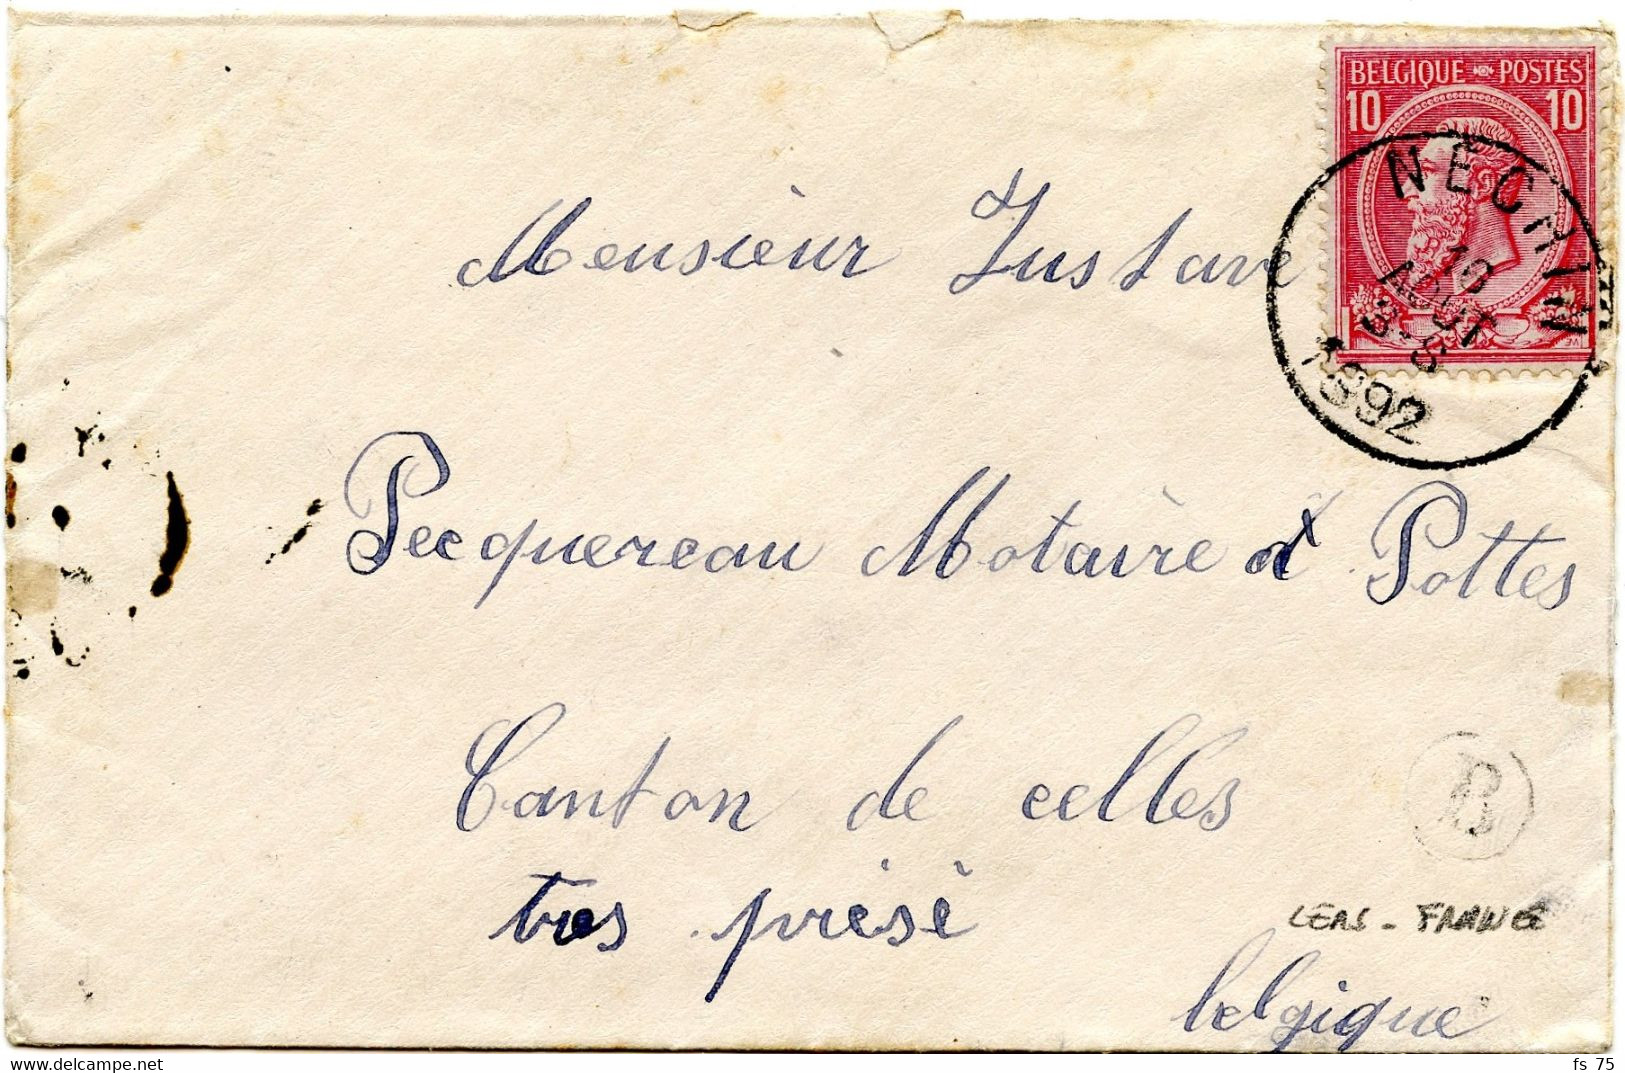 BELGIQUE POSTES
10 10
NÉCHIN
10
AOUT
8-S
1892
Monsieur Gustave
Pecquereau Notaire à Pottes
Canton de celles
tres présé
B
LERS - FRANCE
belgique
delcampe.net
fs_75